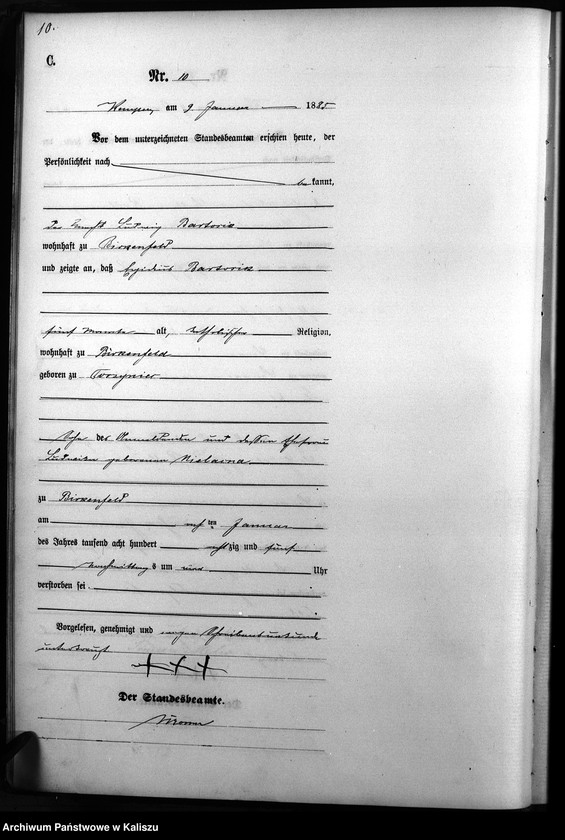 10.
C.
Nr. 10
Kempen, am 9 Januar 1885
Vor dem unterzeichneten Standesbeamten erschien heute, der
Persönlichkeit nach
bekannt,
der Knecht Ludwig Bartosik
wohnhaft zu Birkenfeld
und zeigte an, daß Egidius Bartosik
fünf Monate alt, katholischer Religion,
wohnhaft zu Birkenfeld
geboren zu
Sohn des Anmeldenden und dessen Ehefrau
geborenen
zu Birkenfeld
am ten Januar
des Jahres tausend acht hundert achtzig und fünf
Nachmittags um Uhr
verstorben sei.
Vorgelesen, genehmigt und wegen Schreibensunkunde
unterkreuzt
+++
Der Standesbeamte.
Archiwum Państwowe w Kaliszu